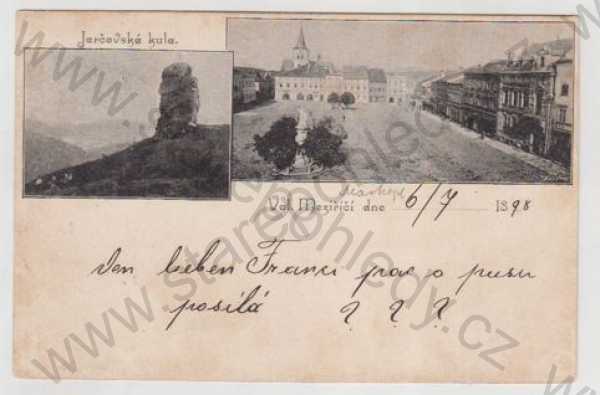 Jarčovská kula.
Val. Meziříčí dne 6/7 1898
Den lieben Franci prac o pusu
posílá ? ? ?
www.stare-pohledy.cz